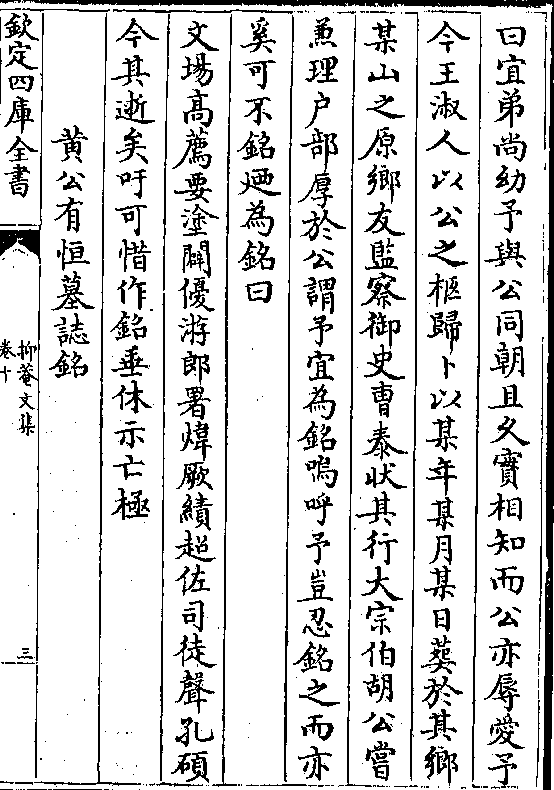 曰宜弟尚幼予與公同朝且久實相知而公亦辱愛予
今王淑人以公之柩歸卜以某年某月某日葬於其鄉
某山之原鄉友監察御史曹泰狀其行大宗伯胡公嘗
兼理户部厚於公謂予宜為銘嗚呼予豈忍銘之而亦
奚可不銘廼為銘曰
文場髙薦要塗闢優游郎署煒厥績超佐司徒聲孔碩
今其逝矣吁可惜作銘垂休示亡極
黄公有恒墓誌銘
欽定四庫全書
抑菴文集
卷十
三